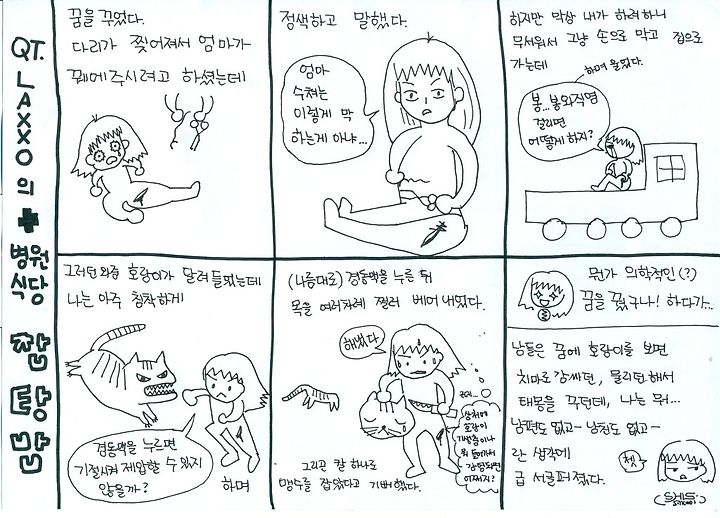 QT.
LAXXO의
병원
식당
잡탕밥
꿈을 꾸었다.
다리가 찢어져서 엄마가
꿰매주시려고 하셨는데
정색하고 말했다.
엄마
수쳐는
이렇게 막
하는게 아냐...
하지만 막상 내가 하려하니
무서워서 그냥 손으로 막고 집으로
가는데
하며 울었다.
봉..봉와직염
걸리면
어떻게 하지?
그러던 와중 호랑이가 달려들었는데
나는 아주 침착하게
경동맥을 누르면
기절시켜 제압할 수 있지
않을까?
하며
(나름대로) 경동맥을 누른 뒤
목을 여러차례 찔러 베어내었다.
해냈다
근데...
상처에
호랑이
뭐 들어가서
감염되면
어쩌지?
그리곤 칼 하나로
맹수를 잡았다고 기뻐했다.
뭔가 의학적인(?)
꿈을 꿨구나! 하다가..
남들은 꿈에 호랑이를 보면
치마로 감싸던, 물리던 해서
태몽을 꾸던데, 나는 뭐...
남편도 없고~ 남친도 없고~
란 생각에
급 서글퍼졌다.
쳇